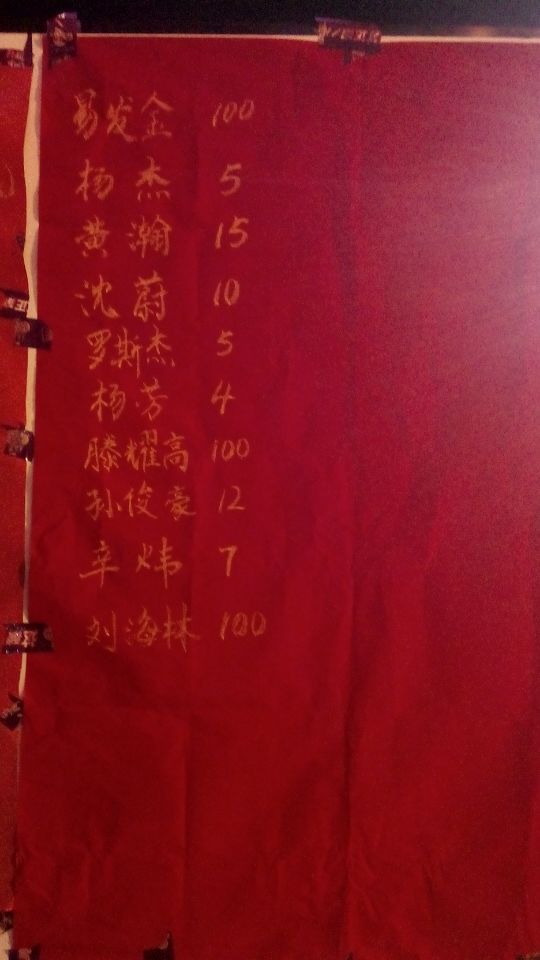 易发金 100
杨杰 5
黄瀚 15
沈蔚 10
罗斯杰 5
杨芳 4
滕耀高 100
孙俊豪 12
辛炜 7
刘海林 100